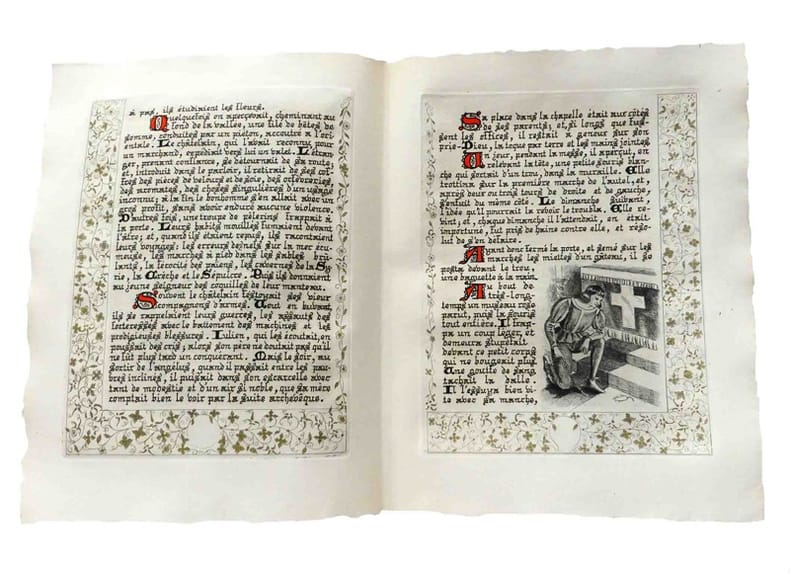 à pas, ils étudiaient les fleurs.
Quelquefois on apercevait, cheminant au
fond de la vallée, une file de bêtes de
somme, conduites par un piéton, accoutré à l'ori-
entale. Le châtelain, qui l'avait reconnu pour
un marchand, expédiait vers lui un valet. L'étran-
ger, prenant confiance, se détournait de sa route;
et, introduit dans le parloir, il retirait de ses cof-
fres des pièces de velours et de soie, des orfèvreries,
des aromates, des choses singulières d'un usage
inconnu; à la fin le bonhomme s'en allait avec un
gros profit, sans avoir enduré aucune violence.
D'autres fois, une troupe de pèlerins frappait à
la porte. Leurs habits mouillés fumaient devant
l'âtre; et, quand ils étaient repus, ils racontaient
leurs voyages: les erreurs des nefs sur la mer écu-
meuse, les marches à pied dans les sables brû-
lants, la férocité des païens, les cavernes de la Sy-
rie, la Crèche et le Sépulcre. Puis ils donnaient
au jeune seigneur des coquilles de leur manteau.
Souvent le châtelain festoyait ses vieux
compagnons d'armes. Tout en buvant,
ils se rappelaient leurs guerres, les assauts des
forteresses avec le battement des machines et les
prodigieuses blessures. Julien, qui les écoutait, en
poussait des cris; alors son père ne doutait pas qu'il
ne fût plus tard un conquérant. Mais le soir, au
sortir de l'angelus, quand il passait entre les pau-
vres inclinés, il puisait dans son escarcelle avec
tant de modestie et d'un air si noble, que sa mère
comptait bien le voir par la suite archevêque.
Sa place dans la chapelle était aux côtés
de ses parents; et, si longs que fus-
sent les offices, il restait à genoux sur son
prie-Dieu, la toque par terre et les mains jointes.
Un jour, pendant la messe, il aperçut, en
relevant la tête, une petite souris blan-
che qui sortait d'un trou, dans la muraille. Elle
trottina sur la première marche de l'autel, et,
après deux ou trois tours de droite et de gauche,
s'enfuit du même côté. Le dimanche suivant,
l'idée qu'il pourrait la revoir le troubla. Elle re-
vint; et, chaque dimanche il l'attendait, en était
importuné, fut pris de haine contre elle, et réso-
lut de s'en défaire.
Ayant donc fermé la porte, et semé sur les
marches les miettes d'un gâteau, il se
posta devant le trou,
une baguette à la main.
Au bout de
très-long-
temps un museau rose
parut, puis la souris
tout entière. Il frap-
pa un coup léger, et
demeura stupéfait
devant ce petit corps
qui ne bougeait plus.
Une goutte de sang
tachait la dalle.
Il l'essuya bien vi-
te avec sa manche,